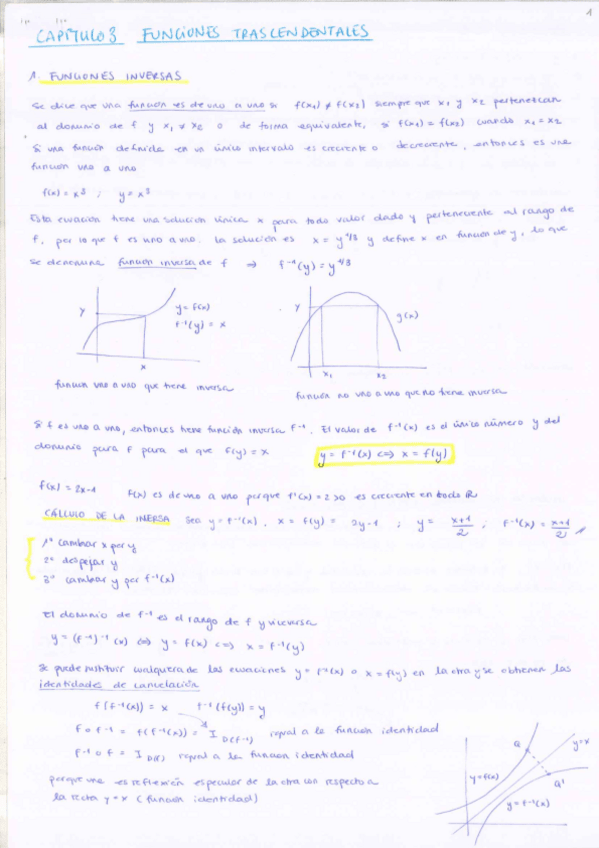 1
CAPÍTULO 3 FUNCIONES TRASCENDENTALES
1. FUNCIONES INVERSAS
Se dice que una función es de uno a uno si f(x1) ≠ f(x2) siempre que x1 y x2 pertenezcan
al dominio de f y x1 ≠ x2 o de forma equivalente, si f(x1) = f(x2) cuando x1 = x2
Si una función definida en un único intervalo es creciente o decreciente, entonces es una
función uno a uno
f(x) = x³ ; y = x³
Esta ecuación tiene una solución única x para todo valor dado y perteneciente al rango de
f, por lo que f es uno a uno. La solución es x = y^1/3 y define x en función de y, lo que
se denomina función inversa de f ⇒ f⁻¹(y) = y^1/3
y
y = f(x)
f⁻¹(y) = x
x
y
g(x)
x1 x2
función uno a uno que tiene inversa
función no uno a uno que no tiene inversa
Si f es uno a uno, entonces tiene función inversa f⁻¹. El valor de f⁻¹(x) es el único número y del
dominio para f para el que f(y) = x y = f⁻¹(x) ⇔ x = f(y)
f(x) = 2x-1 f(x) es de uno a uno porque f'(x) = 2 > 0 es creciente en todo ℝ
CÁLCULO DE LA INERSA Sea y = f⁻¹(x), x = f(y) = 2y-1 ; y = x+1/2 ; f⁻¹(x) = x+1/2
1º cambiar x por y
2º despejar y
3º cambiar y por f⁻¹(x)
El dominio de f⁻¹ es el rango de f y viceversa
y = (f⁻¹)⁻¹(x) ⇔ y = f(x) ⇔ x = f⁻¹(y)
Se puede sustituir cualquiera de las ecuaciones y = f⁻¹(x) o x = f(y) en la otra y se obtienen las
identidades de cancelación
f(f⁻¹(x)) = x f⁻¹(f(y)) = y
f o f⁻¹ = f(f⁻¹(x)) = I D(f⁻¹) igual a la función identidad
f⁻¹ o f = I D(f) igual a la función identidad
porque una es reflexión especular de la otra con respecto a
la recta y = x (función identidad)
Q
y = x
y = f(x)
Q'
y = f⁻¹(x)